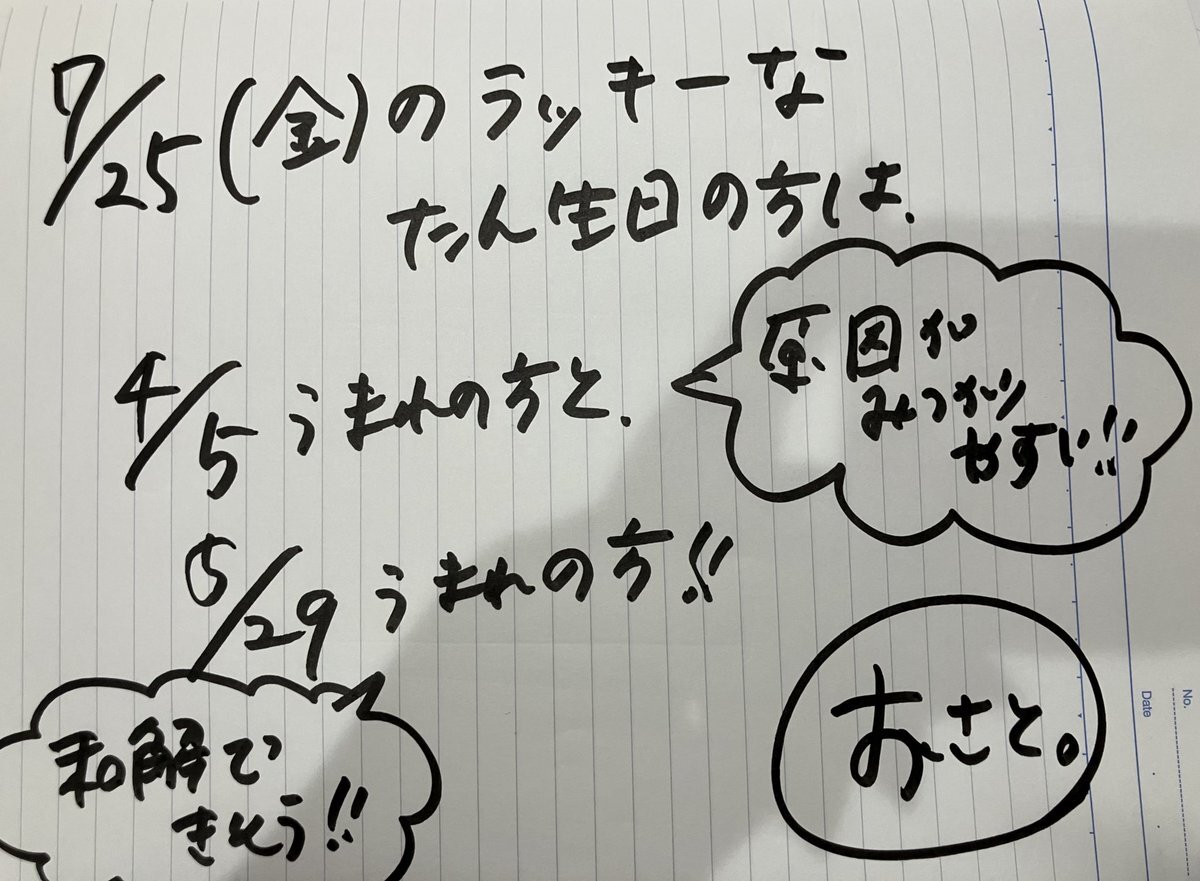 7/25(金)のラッキーな
たん生日の方は、
4/5うまれの方と、
原因が
みつかり
やすい!!
5/29うまれの方!!
和解で
きそう!!
おさと。
No.
Date